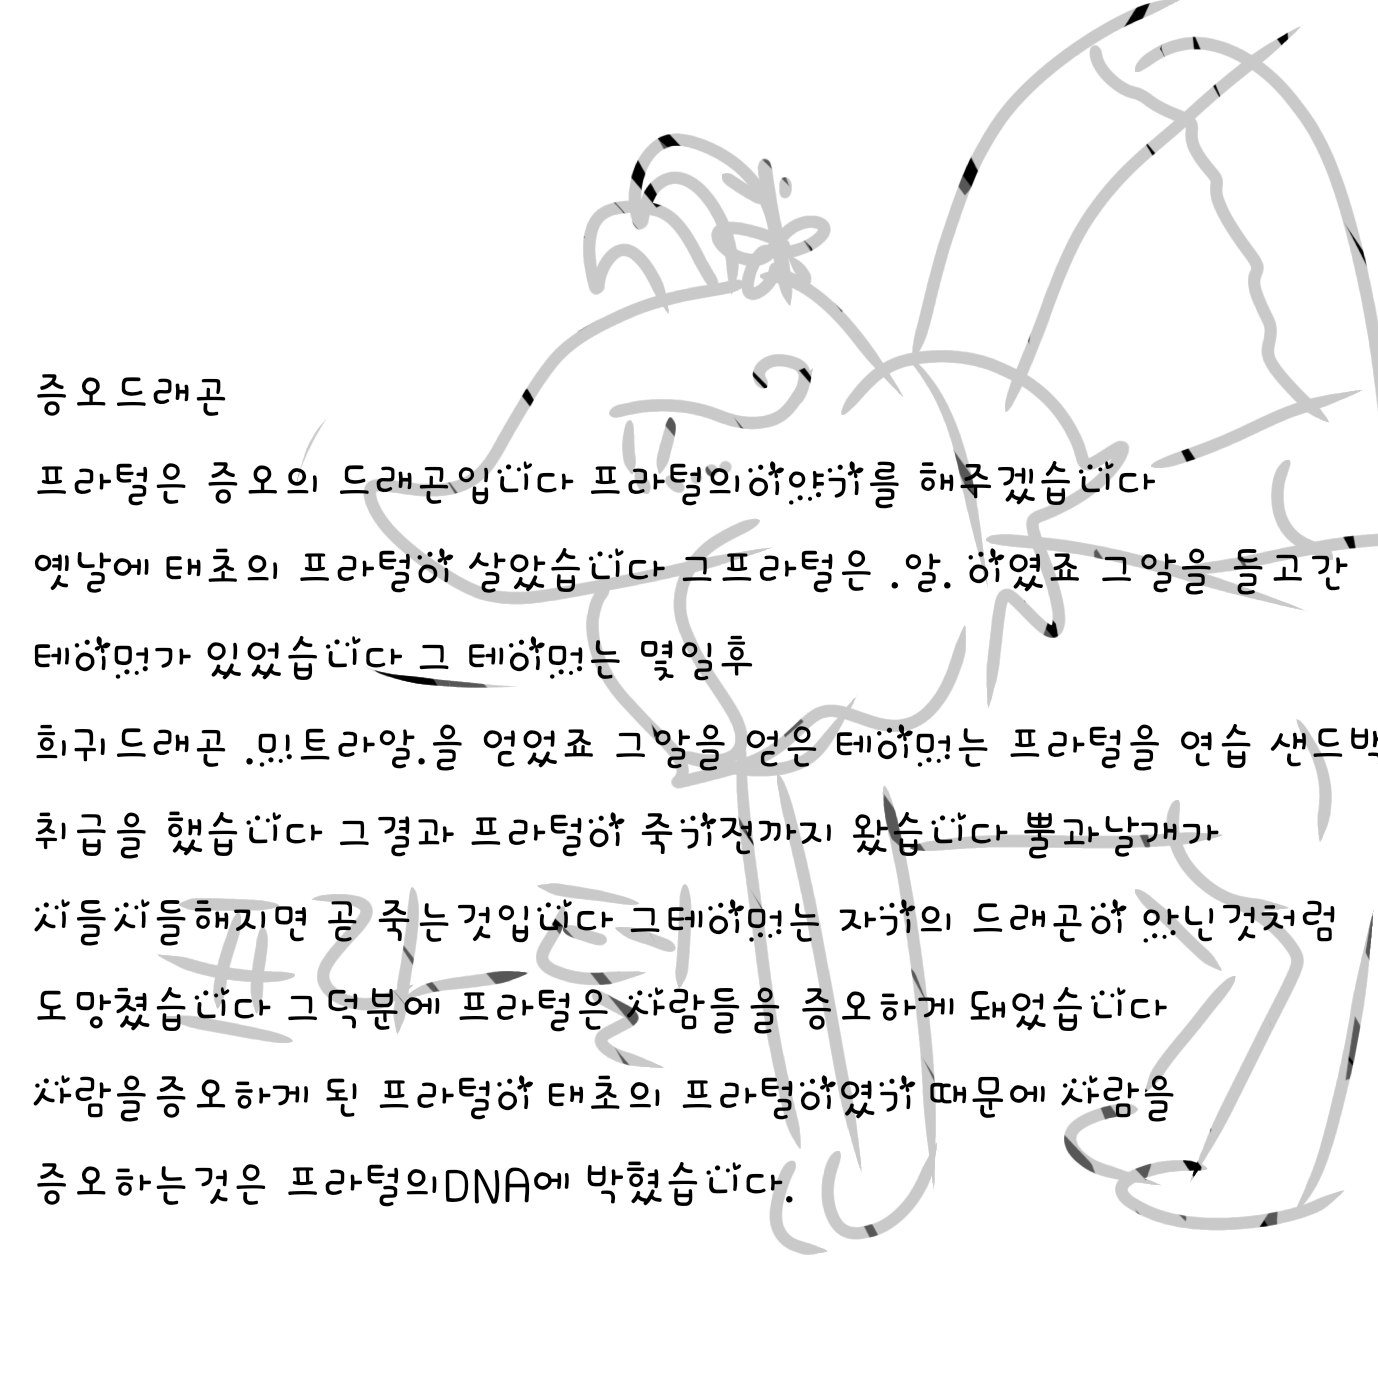 증오드래곤
프라털은 증오의 드래곤입니다 프라털의이야기를 해주겠습니다
옛날에 태초의 프라털이 살았습니다 그프라털은 .알. 이였죠 그알을 들고간
테이머가 있었습니다 그 테이머는 몇일후
희귀드래곤 .미트라알.을 얻었죠 그알을 얻은 테이머는 프라털을 연습 샌드백
취급을 했습니다 그결과 프라털이 죽기전까지 왔습니다 뿔과날개가
시들시들해지면 곧 죽는것입니다 그테이머는 자기의 드래곤이 아닌것처럼
도망쳤습니다 그덕분에 프라털은 사람들을 증오하게 돼었습니다
사람을증오하게 된 프라털이 태초의 프라털이였기 때문에 사람을
증오하는것은 프라털의DNA에 박혔습니다.
프라털